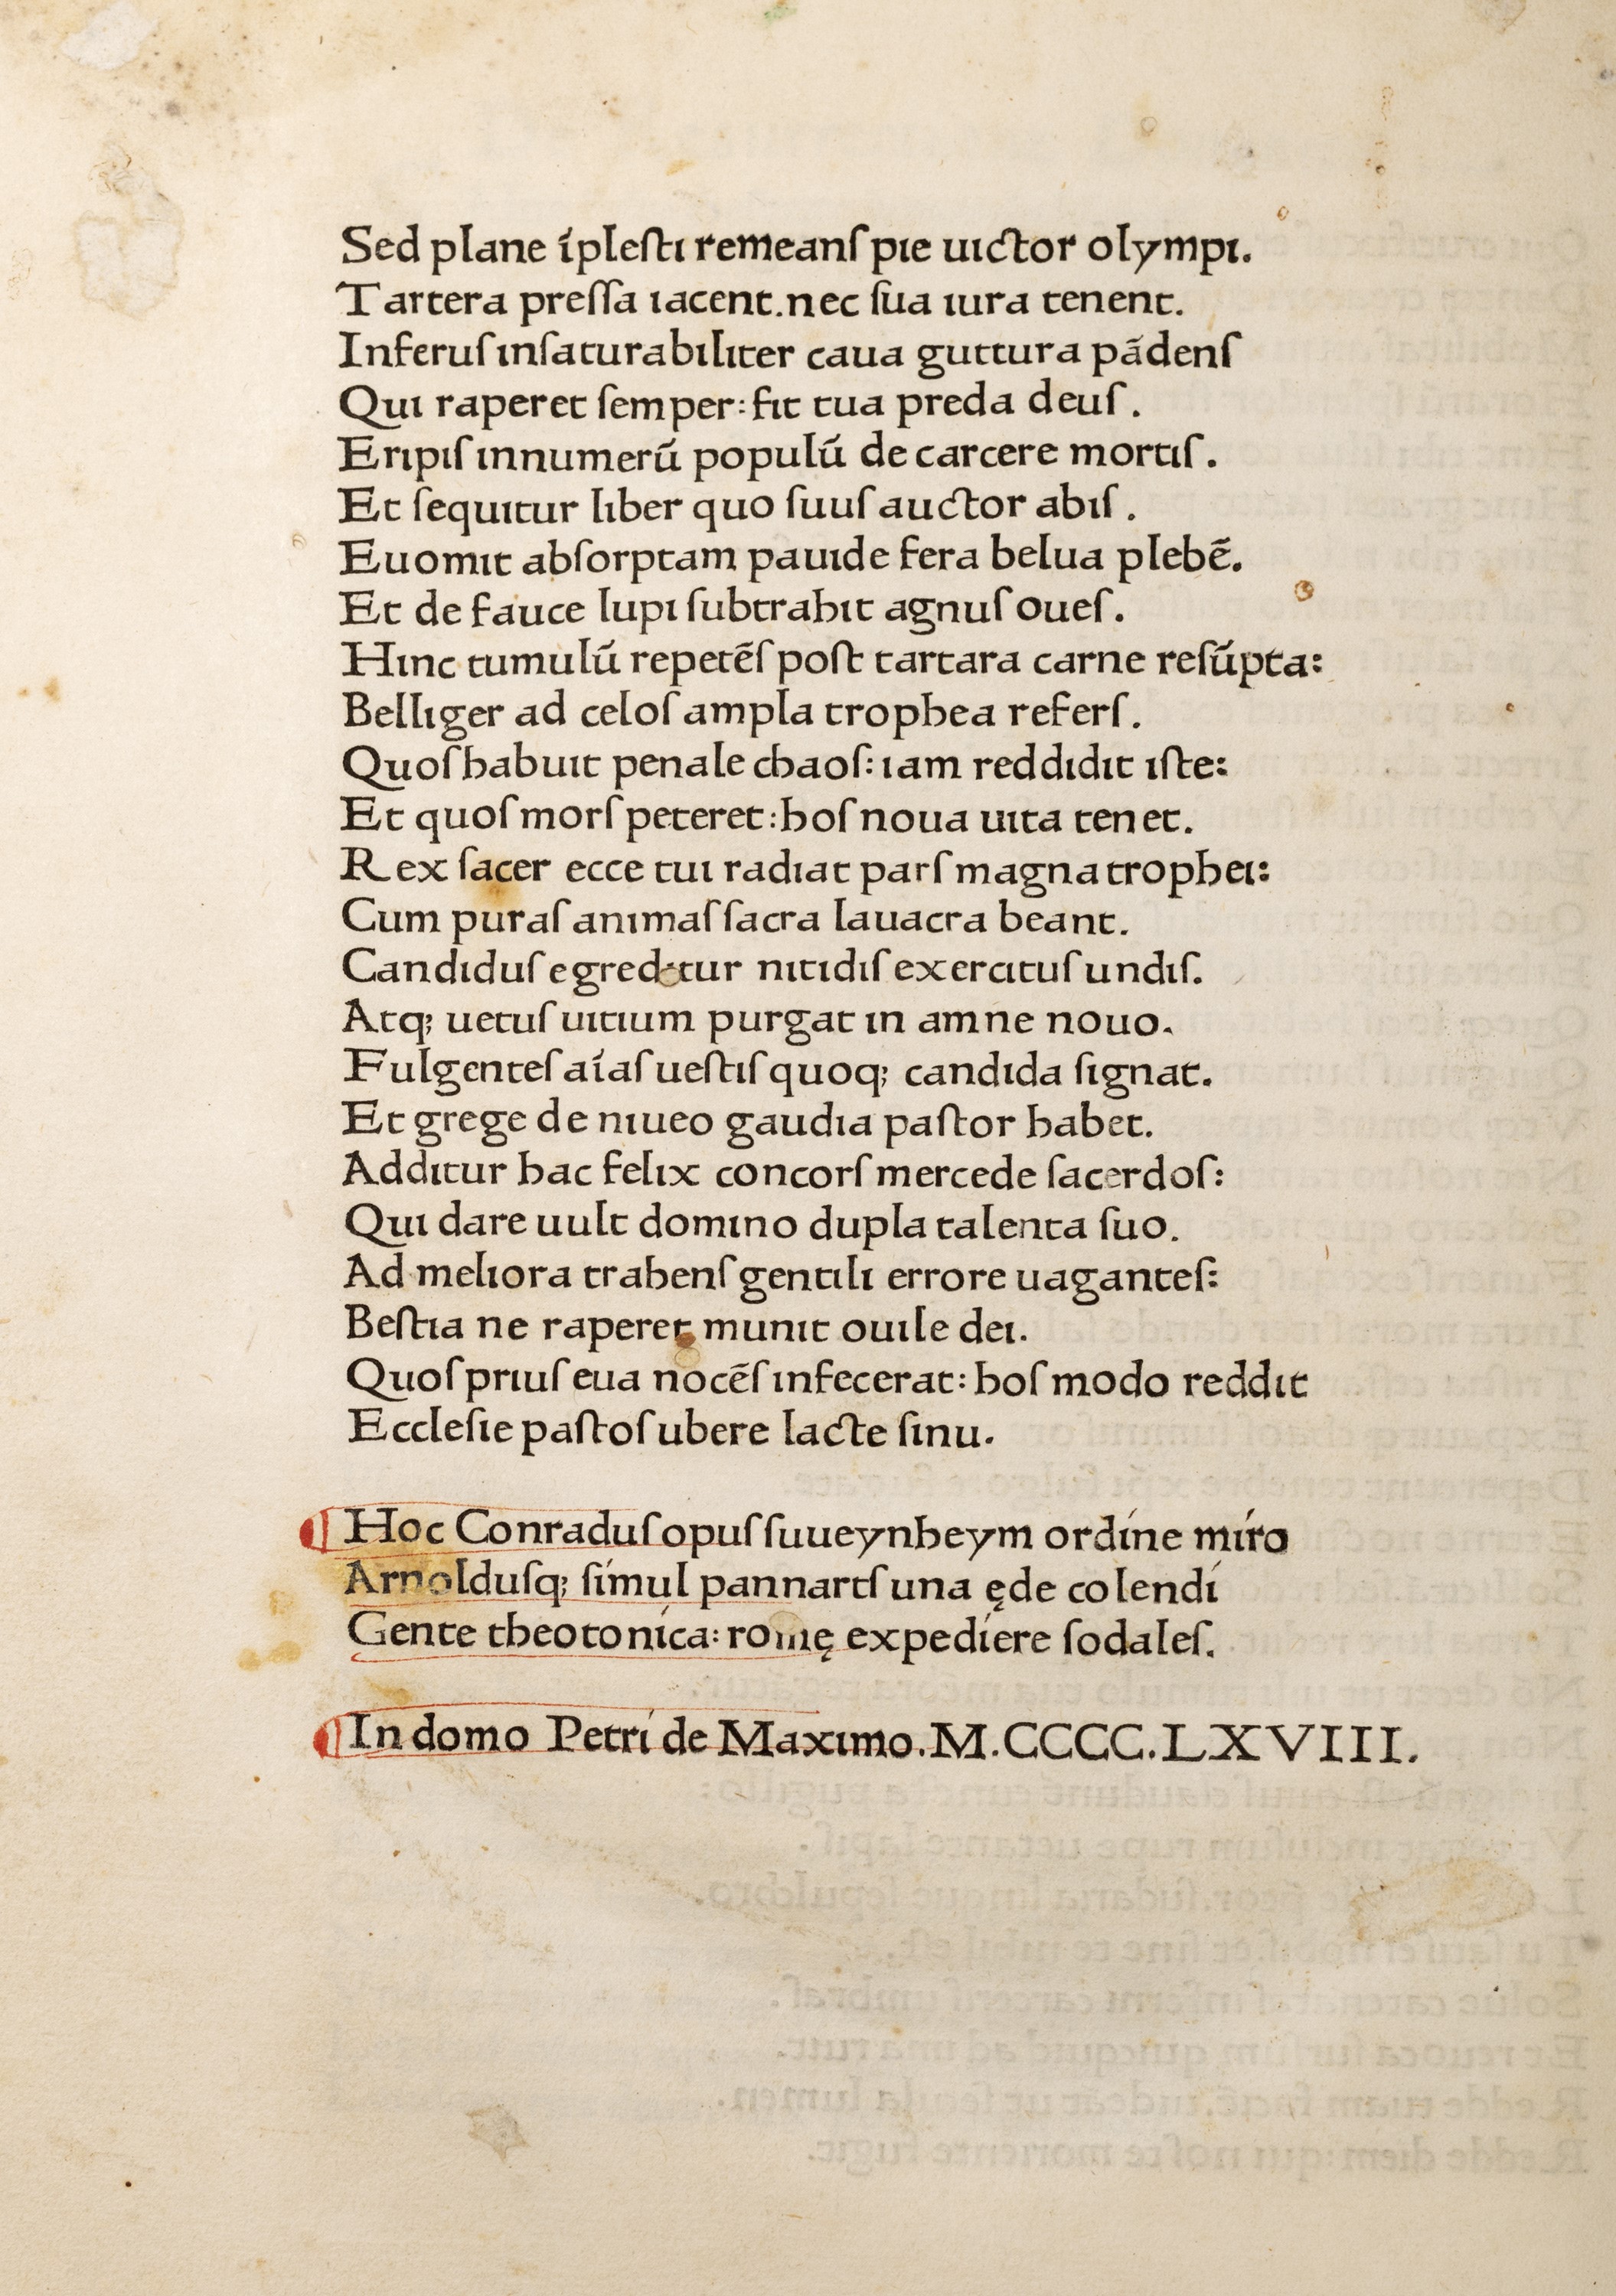 Sed plane īpleſti remeanſ pie uictor olympi.
Tartera preſſa iacent. nec ſua iura tenent.
Inferuſ inſaturabiliter caua guttura pādenſ
Qui raperet ſemper: fit tua preda deuſ.
Eripiſ innumerū populū de carcere mortiſ.
Et ſequitur liber quo ſuuſ auctor abiſ.
Euomit abſorptam pauide fera belua plebē.
Et de fauce lupi ſubtrahit agnuſ oueſ.
Hinc tumulū repetēſ poſt tartara carne reſūpta:
Belliger ad celoſ ampla trophea referſ.
Quoſ habuit penale chaoſ: iam reddidit iſte:
Et quoſ morſ peteret: hoſ noua uita tenet.
Rex ſacer ecce tui radiat parſ magna trophei:
Cum puraſ animaſ ſacra lauacra beant.
Candiduſ egreditur nitidiſ exercituſ undiſ.
Atq; uetuſ uitium purgat in amne nouo.
Fulgenteſ aīaſ ueſtiſ quoq; candida ſignat.
Et grege de niueo gaudia paſtor habet.
Additur hac felix concorſ mercede ſacerdoſ:
Qui dare uult domino dupla talenta ſuo.
Ad meliora trahenſ gentili errore uaganteſ:
Beſtia ne raperet munit ouile dei.
Quoſ priuſ eua nocēſ infecerat: hoſ modo reddit
Eccleſie paſtoſ ubere lacte ſinu.
Hoc Conraduſ opuſ ſuueynheym ordíne míro
Arnolduſq; ſímul pannartſ una ęde colendí
Gente theotoníca: romę expedíere ſodaleſ.
In domo Petrí de Maximo. M.CCCC.LXVIII.